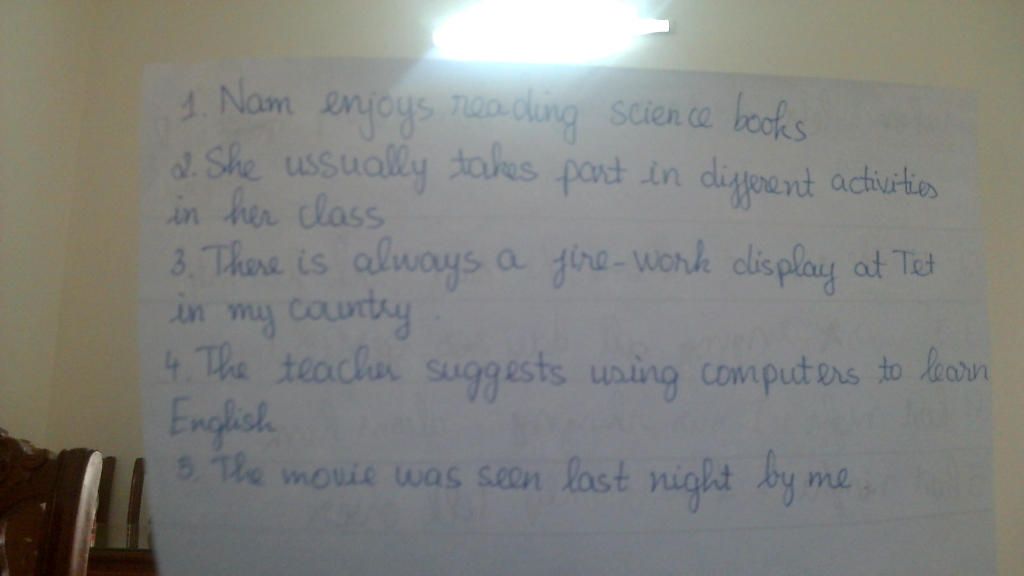 1. Nam enjoys reading science books
2. She ussually takes part in different activities
in her class
3. There is always a fire-work display at Tet
in my country.
4. The teacher suggests using computers to learn
English
5. The movie was seen last night by me